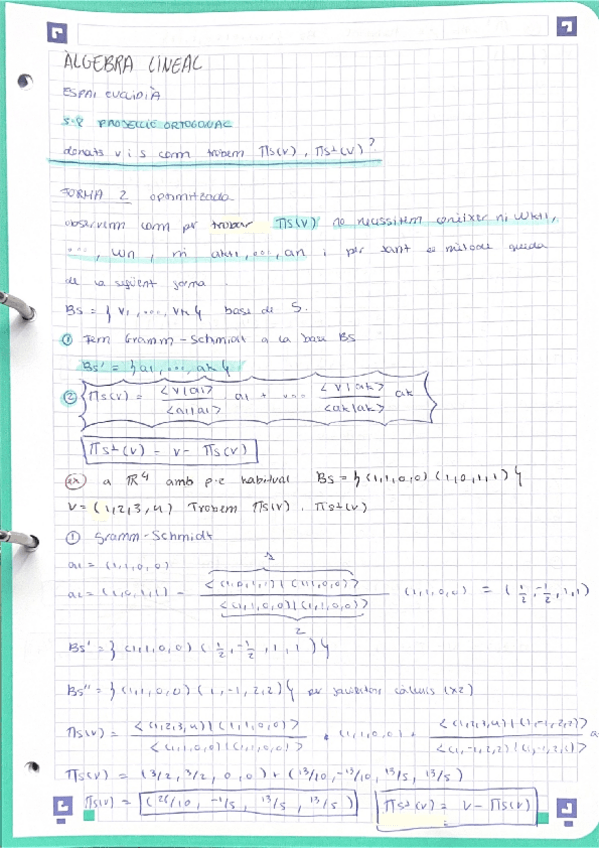 ÀLGEBRA LINEAL
ESPAI EUCLIDIÀ
5.8 PROJECCIÓ ORTOGONAL
donats v i s com trobem πs(v), πs⊥(v)?
FORMA 2 optimitzada
observem com per trobar πs(v) no necessitem conèixer ni wk+1,
..., wn, ni ak+1, ..., an i per tant el mètode queda
de la següent forma
Bs = { v1, ..., vk } base de S.
① Fem Gramm-Schmidt a la base Bs
Bs' = { a1, ..., ak }
② πs(v) = <v|a1>/<a1|a1> a1 + ... <v|ak>/<ak|ak> ak
πs⊥(v) = v - πs(v)
ex a R4 amb p.e habitual Bs = { (1,1,0,0) (1,0,1,1) }
v = (1,2,3,4) Trobem πs(v), πs⊥(v)
① Gramm-Schmidt
a1 = (1,1,0,0)
a2 = (1,0,1,1) - <(1,0,1,1)|(1,1,0,0)>/<(1,1,0,0)|(1,1,0,0)> (1,1,0,0) = (1/2, -1/2, 1, 1)
2
Bs' = { (1,1,0,0) (1/2, -1/2, 1, 1) }
Bs'' = { (1,1,0,0) (1,-1,2,2) } per facilitar càlculs (x2)
πs(v) = <(1,2,3,4)|(1,1,0,0)>/<(1,1,0,0)|(1,1,0,0)> · (1,1,0,0) + <(1,2,3,4)|(1,-1,2,2)>/<(1,-1,2,2)|(1,-1,2,2)> a
πs(v) = (3/2, 3/2, 0, 0) + (13/10, -13/10, 13/5, 13/5)
πs(v) = (28/10, -1/5, 13/5, 13/5) πs⊥(v) = v - πs(v)